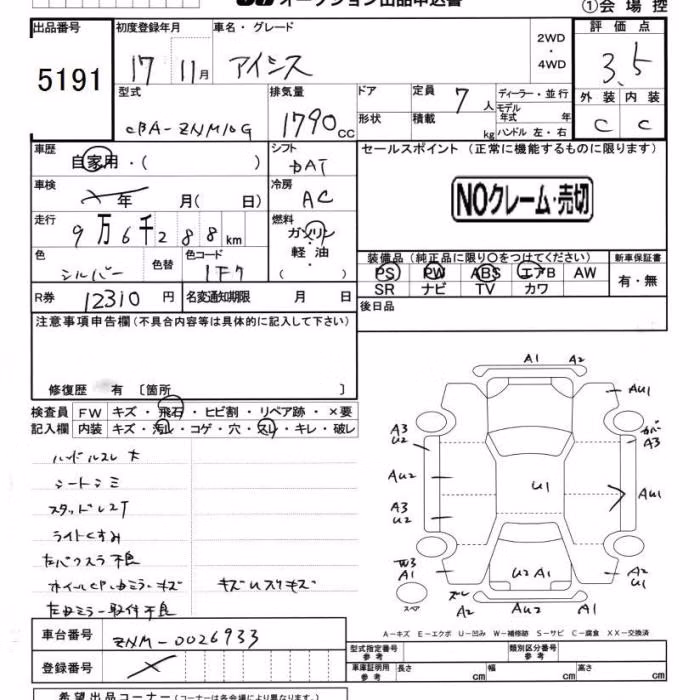 オークション出品申込書
①会場控
出品番号
5191
初度登録年月
17 11月
車名・グレード
アイシス
2WD
・
4WD
評価点
3.5
外装 内装
C C
型式
CBA-ZNM10G
排気量
1790cc
ドア
形状
定員 7人
積載 kg
ディーラー・並行
モデル年式 年
ハンドル 左・右
車歴
自家用・( )
シフト
DAT
車検
年 月( 日)
冷房
AC
走行
9万6千288km
燃料
ガソリン
軽油
( ・ )
色
シルバー
色替
色コード
1F7
R券 12310円
名変通期限 月 日
セールスポイント (正常に機能するものに限ります)
NOクレーム・売切
装備品(純正品に限り〇をつけてください)
PS PW ABS エアB AW
SR ナビ TV カワ
新車保証書
有・無
後日品
注意事項申告欄(不具合内容等は具体的に記入して下さい)
修復歴 有 〔箇所 〕
検査員 FW キズ・飛石・ヒビ割・リペア跡・×要
記入欄 内装 キズ・汚レ・コゲ・穴・スレ・キレ・破レ
ハンドルスレ大
シートシミ
スタッドレスT
ライトくすみ
左バクスラ不良
ホイルCP・ムミラーキズ キズUスリキズ
左ムミラー取付不良
A1 A2
AU1
A3
U2
カバー
A3
AU2
U1
AU1
A3
U2
W3
A1
U2 A1
A2
U1
スペア
ズレ
A2
AU2
A1
A-キズ E-エクボ U-凹み W-補修跡 S-サビ C-腐食 XX-交換済
車台番号 ZNM-0026933
登録番号
型式指定番号
参考
類別区分番号
参考
車庫証明用
参考
長さ cm 幅 cm 高さ cm
希望出品コーナー(コーナーは各会場により異なります。)